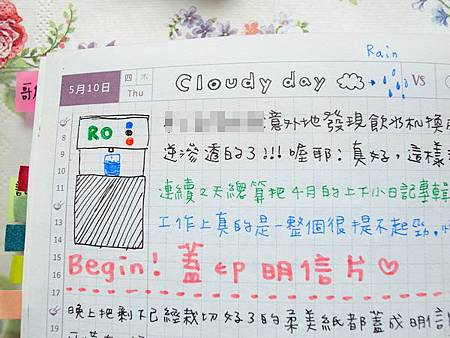 Rain
哥
5月10日 四 木 Thu Cloudy day → VS
8
9
10
11
12
13
14
15
16
17
18
19
RO
意外地發現飲水机換成
逆滲透的了!!!喔耶!真好,這樣
連續2天總算把4月的上下小日記專輯
工作上真的是一整個很提不起勁.
Begin! 蓋印明信片♡
晚上把剩下已經裁切好了的柔美紙都蓋成明信